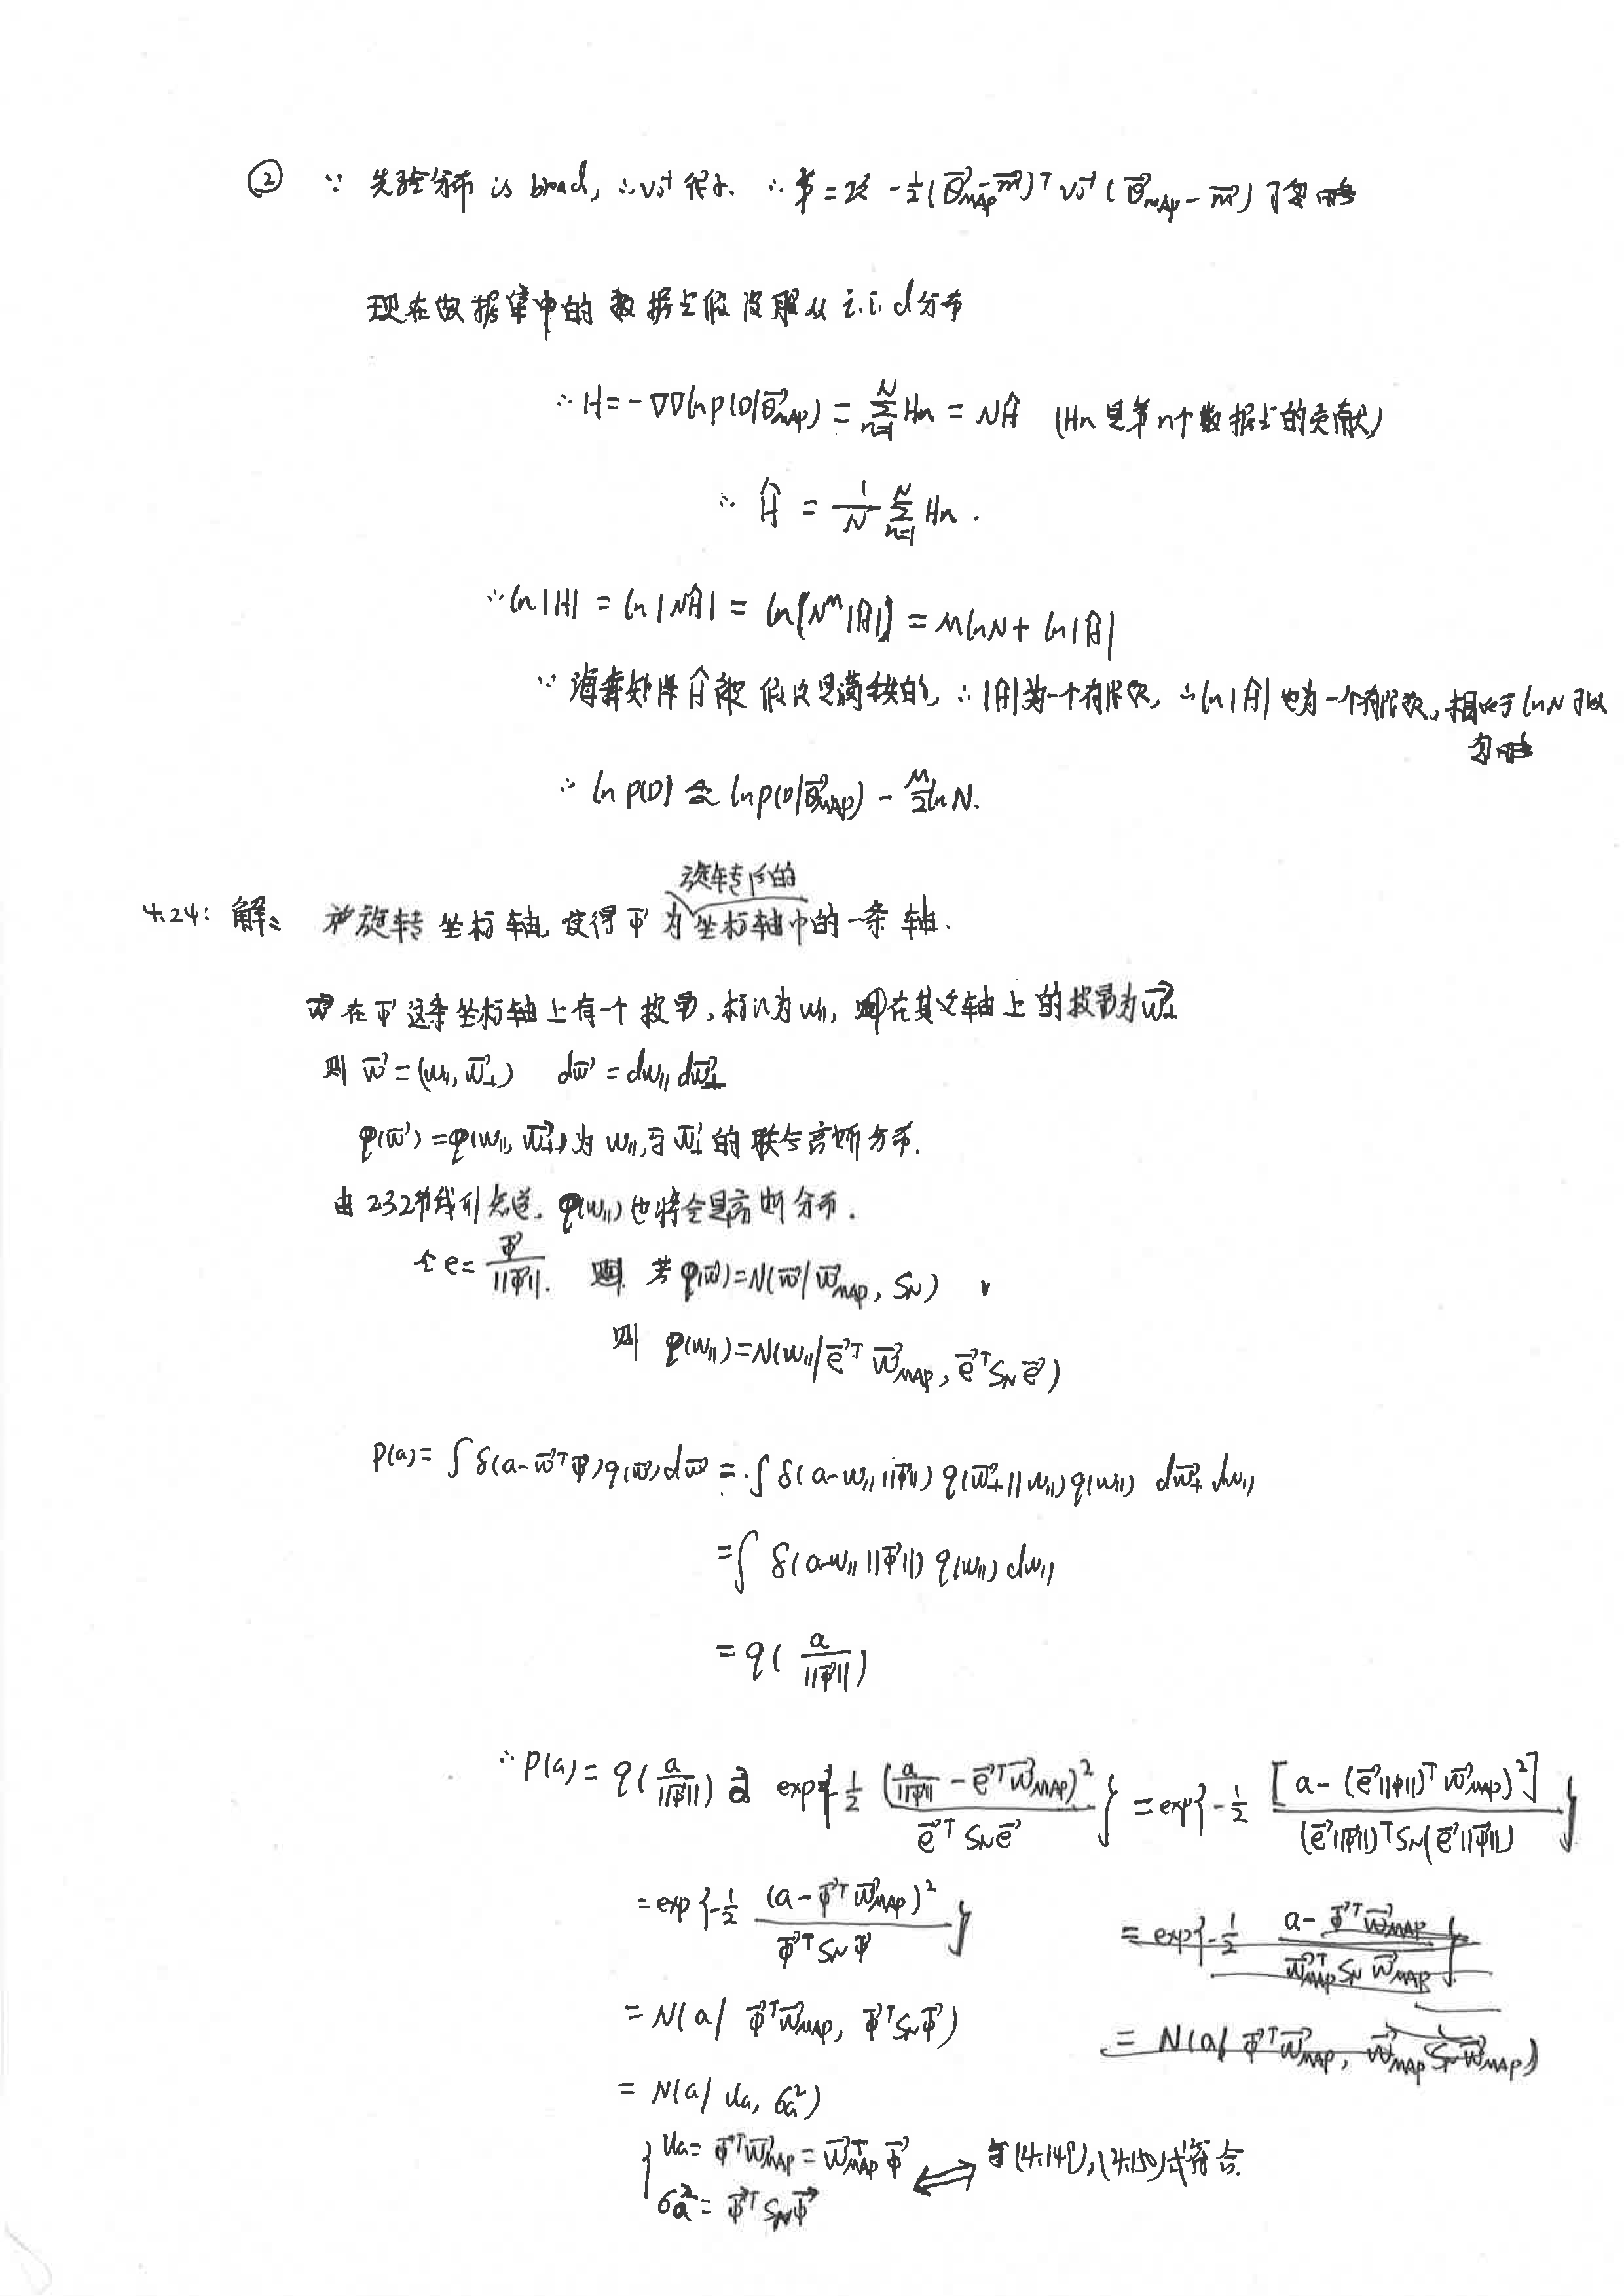 ② ∵ 先验分布 is broad, ∴ V₀⁻¹ 很小. ∴ 第二项 -½(θ⃗_MAP - m⃗)ᵀ V₀⁻¹ (θ⃗_MAP - m⃗) 可忽略
现在数据集中的数据点假设服从 i.i.d 分布
∴ H = -∇∇ln p(D|θ⃗_MAP) = Σ_{n=1}^{N} Hn = NĤ (Hn 是第n个数据点的贡献)
∴ Ĥ = 1/N Σ_{n=1}^{N} Hn .
∴ ln|H| = ln|NĤ| = ln[N^M|Ĥ|] = M ln N + ln|Ĥ|
∵ 海森矩阵 Ĥ 被假设是满秩的, ∴ |Ĥ| 为一个有限数, ∴ ln|Ĥ| 也为一个有限数, 相比于 ln N 可以
忽略
∴ ln p(D) ≃ ln p(D|θ⃗_MAP) - M/2 ln N.
旋转后的
4.24: 解: 旋转 坐标轴, 使得 Φ⃗ 为 坐标轴中的一条轴.
w⃗ 在 Φ⃗ 这条坐标轴上有一个投影, 标记为 w∥, 在其它轴上的投影为 w⃗⊥
则 w⃗ = (w∥, w⃗⊥) dw⃗ = dw∥ dw⃗⊥
q(w⃗) = q(w∥, w⃗⊥) 为 w∥ 与 w⃗⊥ 的联合高斯分布.
由 2.3.2节我们知道. q(w∥) 也将会是高斯分布.
令 e = Φ⃗/||Φ⃗||. 若 q(w⃗) = N(w⃗|w⃗_MAP, S_N)
则 q(w∥) = N(w∥|e⃗ᵀ w⃗_MAP, e⃗ᵀ S_N e⃗)
p(a) = ∫ δ(a - w⃗ᵀΦ⃗) q(w⃗) dw⃗ = ∫ δ(a - w∥||Φ⃗||) q(w⃗⊥|w∥) q(w∥) dw⃗⊥ dw∥
= ∫ δ(a - w∥||Φ⃗||) q(w∥) dw∥
= q(a/||Φ⃗||)
∴ p(a) = q(a/||Φ⃗||) ∝ exp{-½ (a/||Φ⃗|| - e⃗ᵀw⃗_MAP)²/(e⃗ᵀ S_N e⃗)} = exp{-½ [a - (e⃗||Φ||)ᵀ w⃗_MAP)²]/((e⃗||Φ⃗||)ᵀ S_N (e⃗||Φ⃗||))}
= exp{-½ (a - Φ⃗ᵀ w⃗_MAP)²/(Φ⃗ᵀ S_N Φ⃗)} = exp{-½ (a - Φ⃗ᵀ w⃗_MAP)/(w⃗_MAPᵀ S_N w⃗_MAP)}
= N(a| Φ⃗ᵀw⃗_MAP, Φ⃗ᵀS_NΦ⃗) = N(a| Φ⃗ᵀw⃗_MAP, w⃗_MAP S_N w⃗_MAP)
= N(a| u_a, σ_a²)
{ u_a = Φ⃗ᵀw⃗_MAP = w⃗ᵀ_MAP Φ⃗ ⟺ 与(4.149),(4.150)式符合.
σ_a² = Φ⃗ᵀ S_N Φ⃗